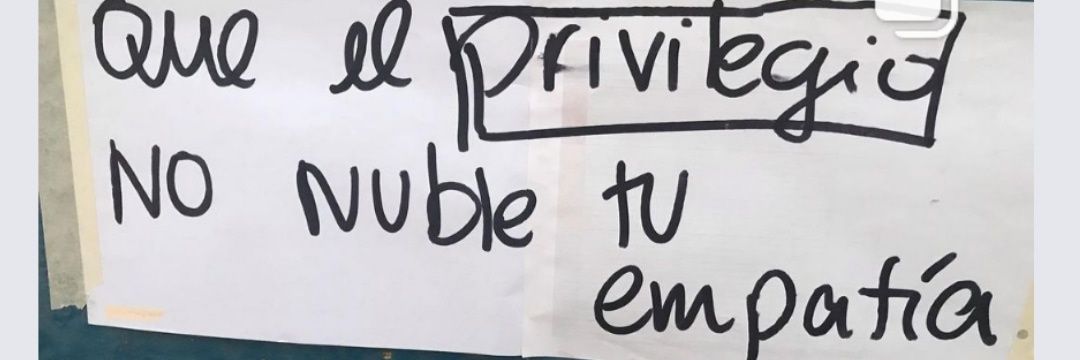 Que el privilegio
NO NUble tu
empatía